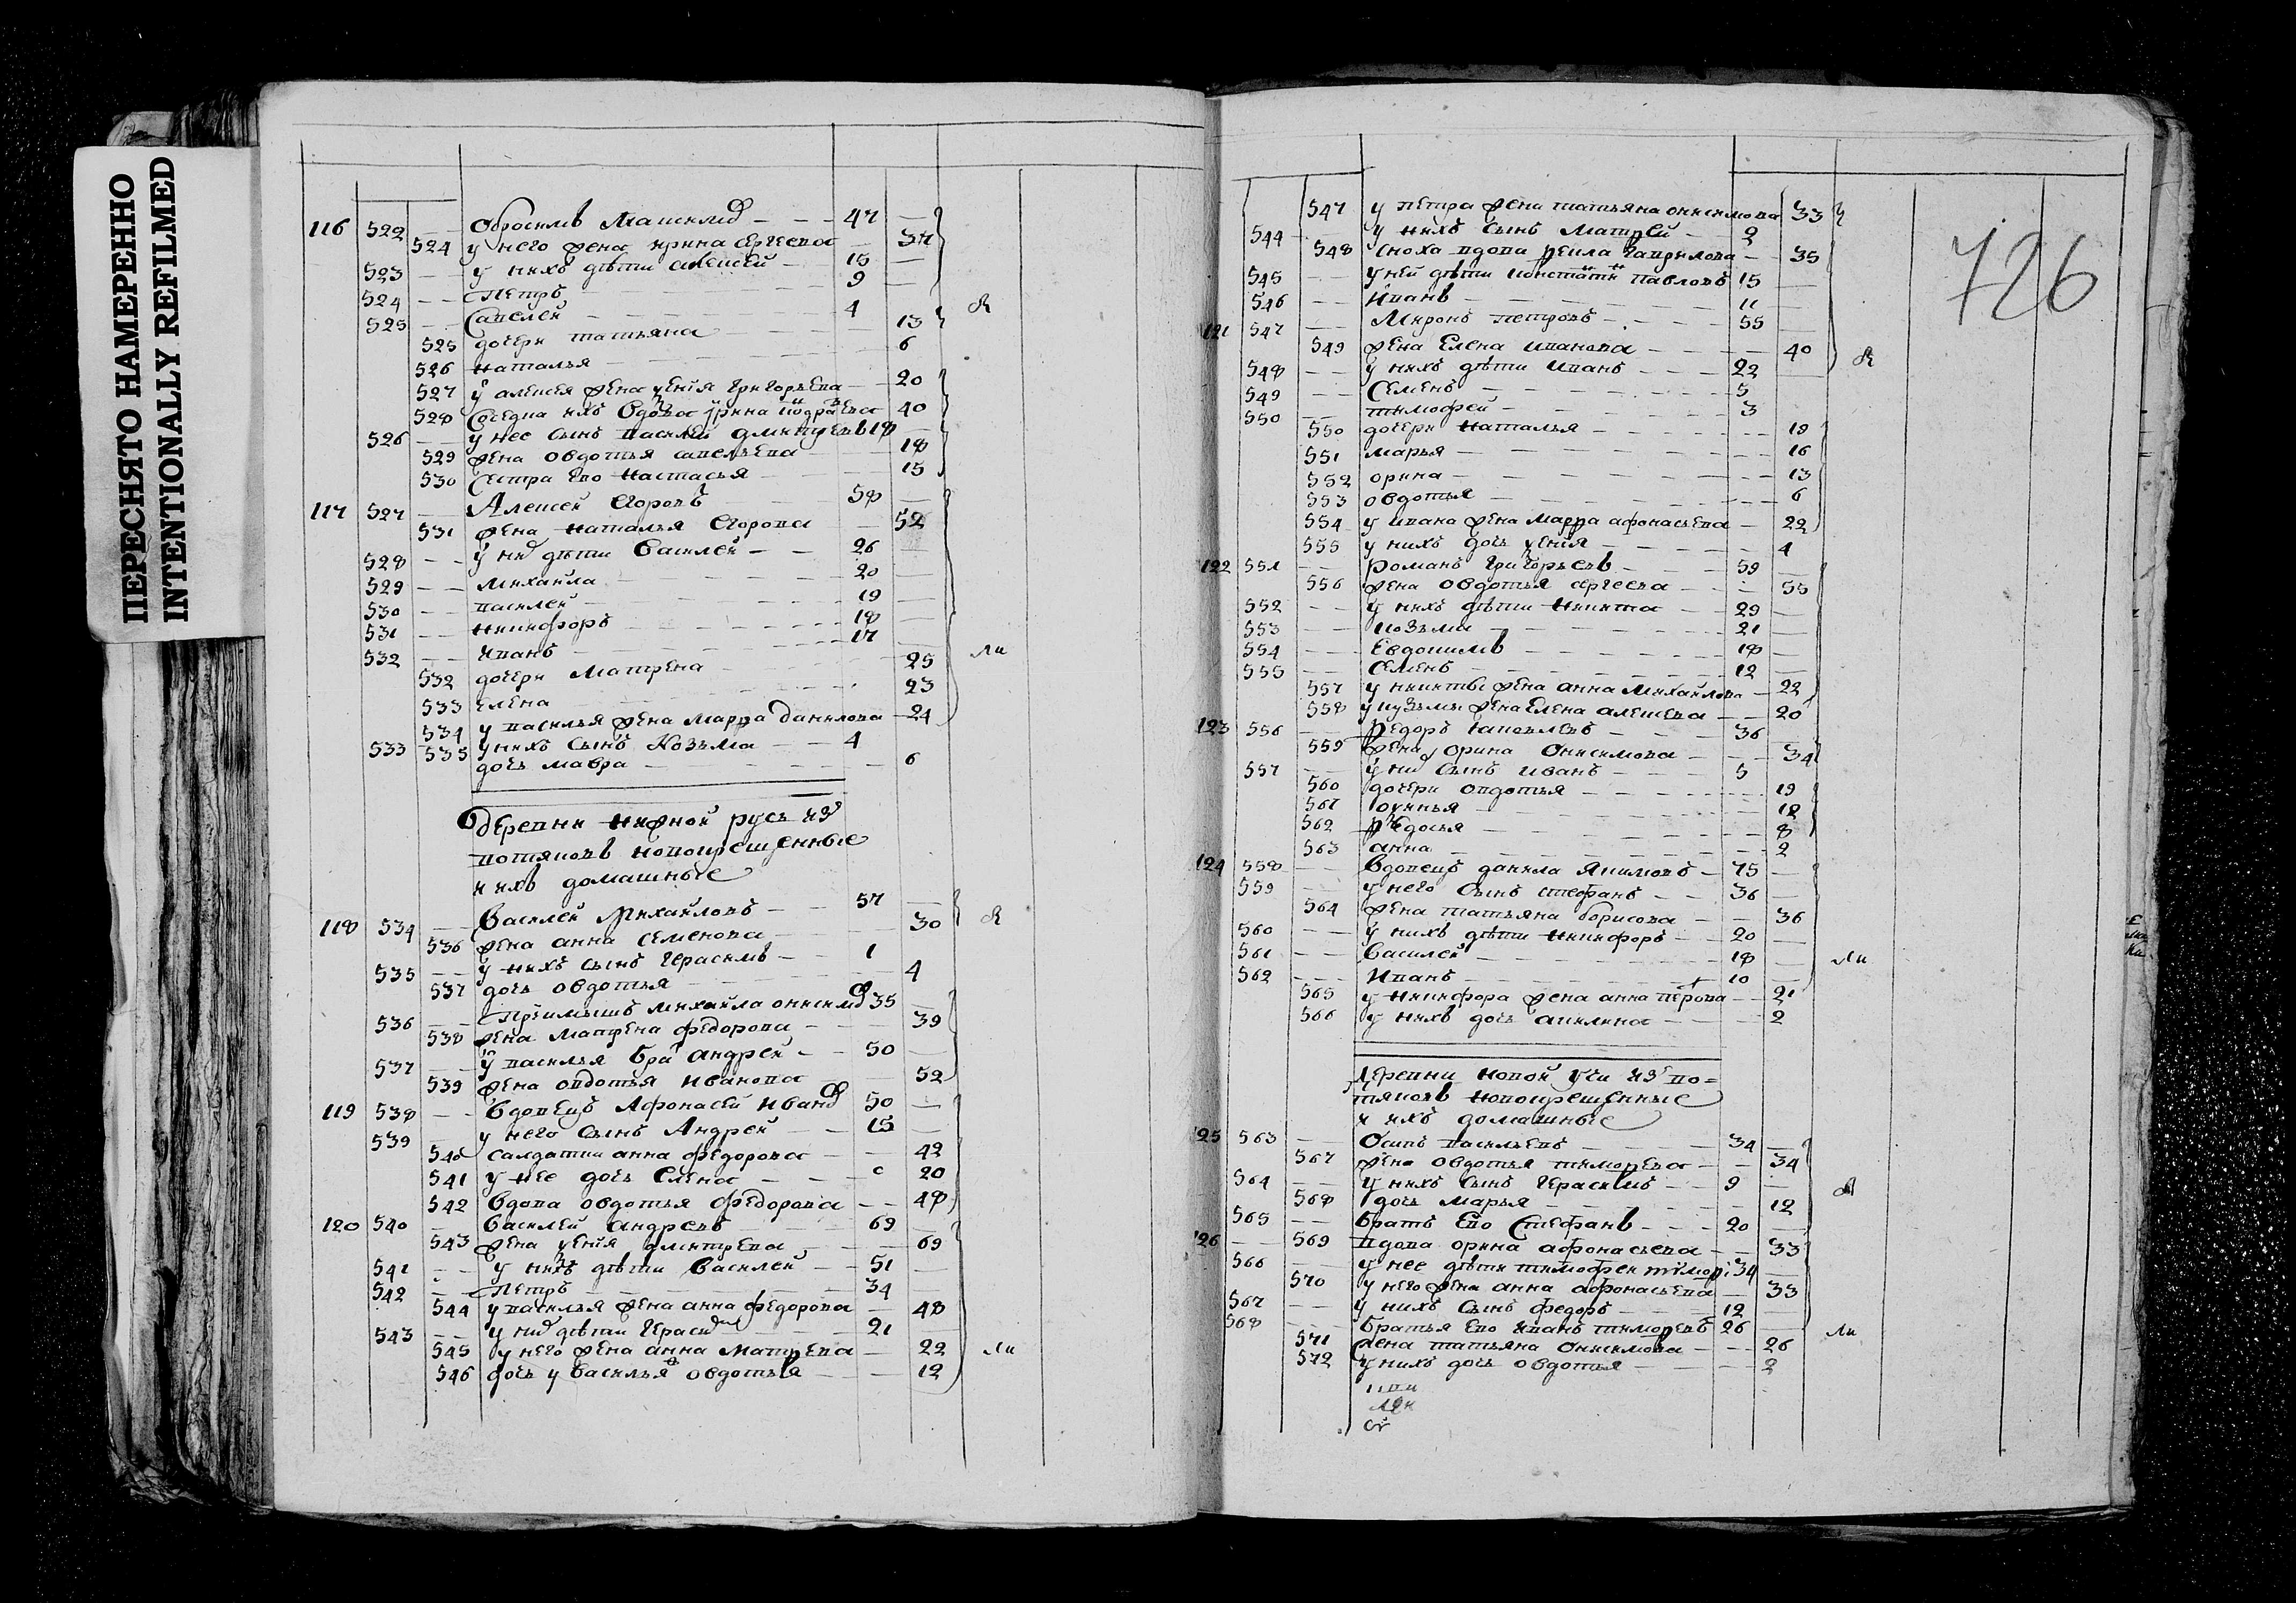 ПЕРЕСНЯТО НАМЕРЕННО
INTENTIONALLY REFILMED
116 522 — Обросимъ Максимо — 47 —
524 у него жена ирина сергеева — 37
523 — у нихъ дѣти алексей — 15 —
524 — Петръ — 9 —
525 — Савелей — 4
525 дочери татьяна — 13
526 наталья — 6
527 у алексея жена григорьева — 20
528 Соседка ихъ вдова ирина 40
526 — у нее сынъ василей дмитриевъ 18 —
529 жена овдотья савельева — 18
530 Сестра ево настасья — 15
117 527 — Алексей Егоровъ 58 —
531 жена наталья Егорова — 52
528 — у них дѣти василей — 26
529 — михаила — 20
530 — василей — 19 —
531 — никифоръ — 18 —
532 — иванъ — 17 —
532 дочери матрена — 25
533 елена — 23
534 у василья жена марфа данилова — 24
533 535 у нихъ сынъ козьма — 4
дочь мавра — 6
деревни нижной русь изъ
вотяковъ новокрещенные
и ихъ домашные
118 534 — василей михайловъ — 57 —
536 жена анна семенова — 30
535 — у нихъ сынъ герасимъ — 1
537 дочь овдотья — 4
536 — Приемышъ михайла онисимо 35 —
538 жена матрена федорова — 39
537 — у василья бра андрей — 50 —
539 жена овдотья иванова — 52
119 538 — вдовецъ Афонасей ивано 50 —
539 — у него сынъ Андрей — 15 —
540 салдатки анна федорова — 42
541 у нее дочь елена — 20
542 вдова овдотья федорова — 48
120 540 — василей андреевъ — 69 —
543 жена дмитрева — 69
541 — у нихъ дѣти василей — 51 —
542 — Петръ — 34 —
544 у василья жена анна федорова — 48
543 — у них дѣти герасим — 21
545 у него жена анна матфеева — 22
546 дочь у василья овдотья — 12
547 у петра жена татьяна онисимова 33
544 — у нихъ сынъ матфей — 2
548 сноха вдова гаврилова — 35
545 — у ней дѣти павловъ 15 —
546 — иванъ — 11 —
121 547 — миронъ петровъ — 55 —
549 жена елена иванова — 40
548 — у нихъ дѣти иванъ — 22 —
549 — семенъ — 5
550 — тимофей — 3
550 дочери наталья — 19
551 марья — 16
552 орина — 13
553 овдотья — 6
554 у ивана жена марфа афонасьева — 22
555 у нихъ дочь — 4
122 551 — романъ григорьевъ — 59 —
556 жена овдотья сергеева — 55
552 — у нихъ дѣти никита — 29 —
553 — козьма — 21 —
554 — Евдокимъ — 18 —
555 — семенъ — 12 —
557 у никиты жена анна михайлова — 22
558 у кузьмы жена елена алексеева — 20
123 556 — федоръ — 36 —
559 жена орина онисимова — 34
557 — у них сынъ иванъ — 5
560 дочери овдотья — 19
561 — 12
562 федосья — 8
563 анна — 2
124 558 — вдовецъ данила якимовъ — 75 —
559 — у него сынъ стефанъ — 36 —
564 жена татьяна борисова — 36
560 — у нихъ дѣти никифоръ — 20 —
561 — василей — 18 —
562 — иванъ — 10 —
565 у никифора жена анна петрова — 21
566 у нихъ дочь акилина — 2
Деревни новой учи изъ во=
тяковъ новокрещенные
и ихъ домашные
125 563 — осипъ васильевъ — 34 —
567 жена овдотья тимофеева — 34
564 — у нихъ сынъ герасимъ — 9 —
568 дочь марья — 12
565 — братъ Ево Стефанъ — 20 —
126 — 569 вдова орина афонасьева — 33
566 — у нее дѣти тимофей 34
570 у него жена анна афонасьева — 33
567 — у нихъ сынъ федоръ — 12
568 — братья Ево иванъ тимофеевъ 26
571 жена татьяна онисимова — 26
572 у нихъ дочь овдотья — 2
726